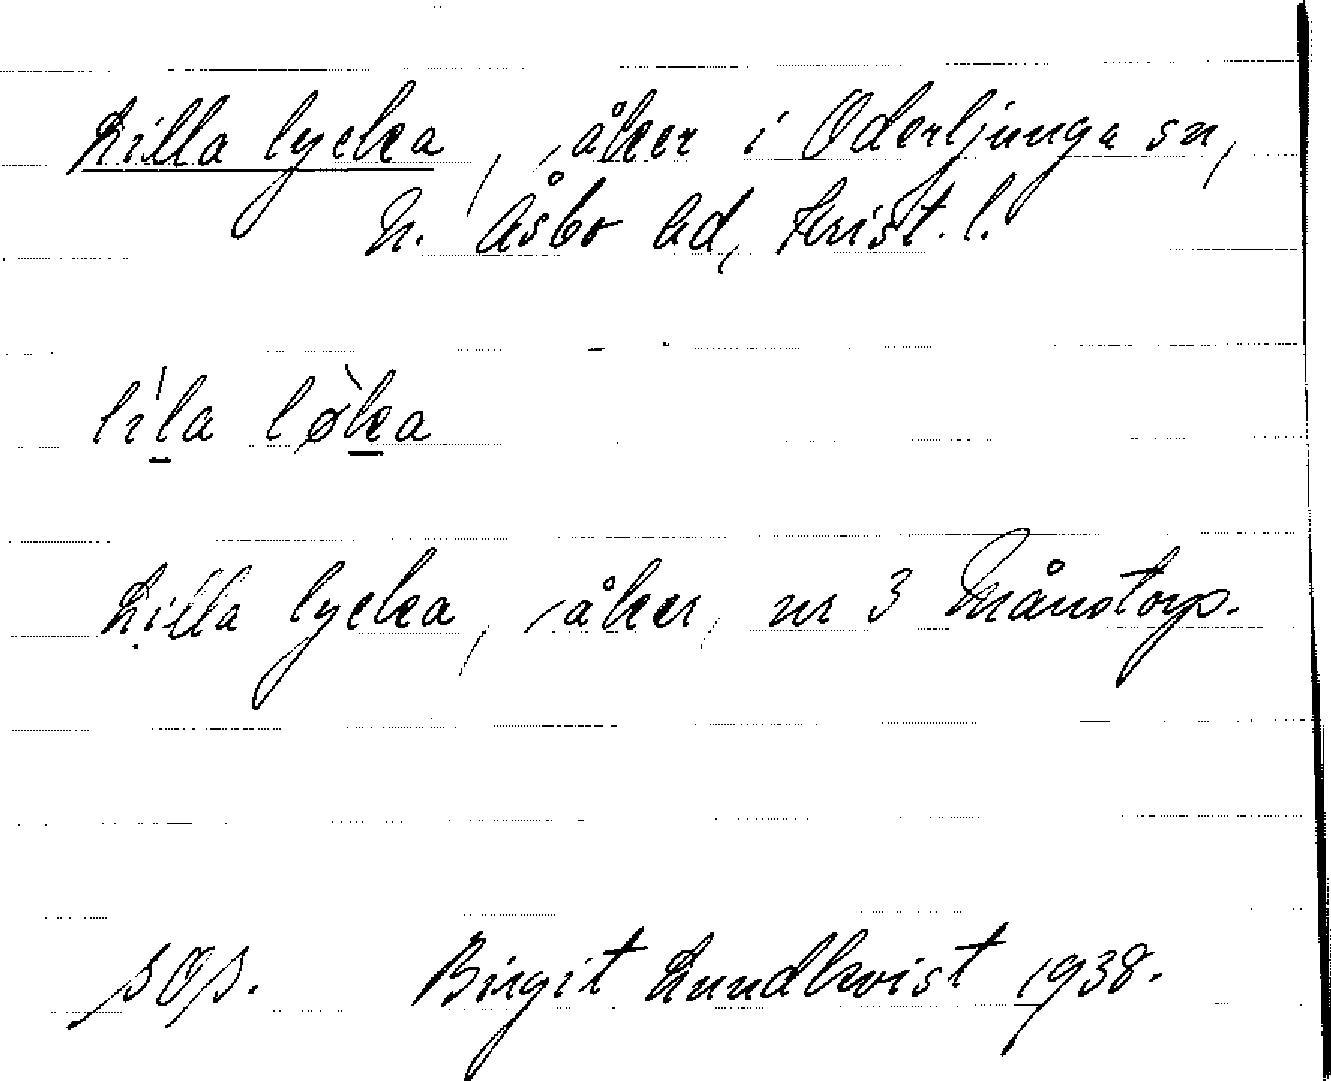 Lilla lycka, åker i Oderljunga sn,
N. Åsbo hd, Krist. l.
lila løka
Lilla lycka, åker, nr 3 Månstorp.
Birgit Lundkvist 1938.